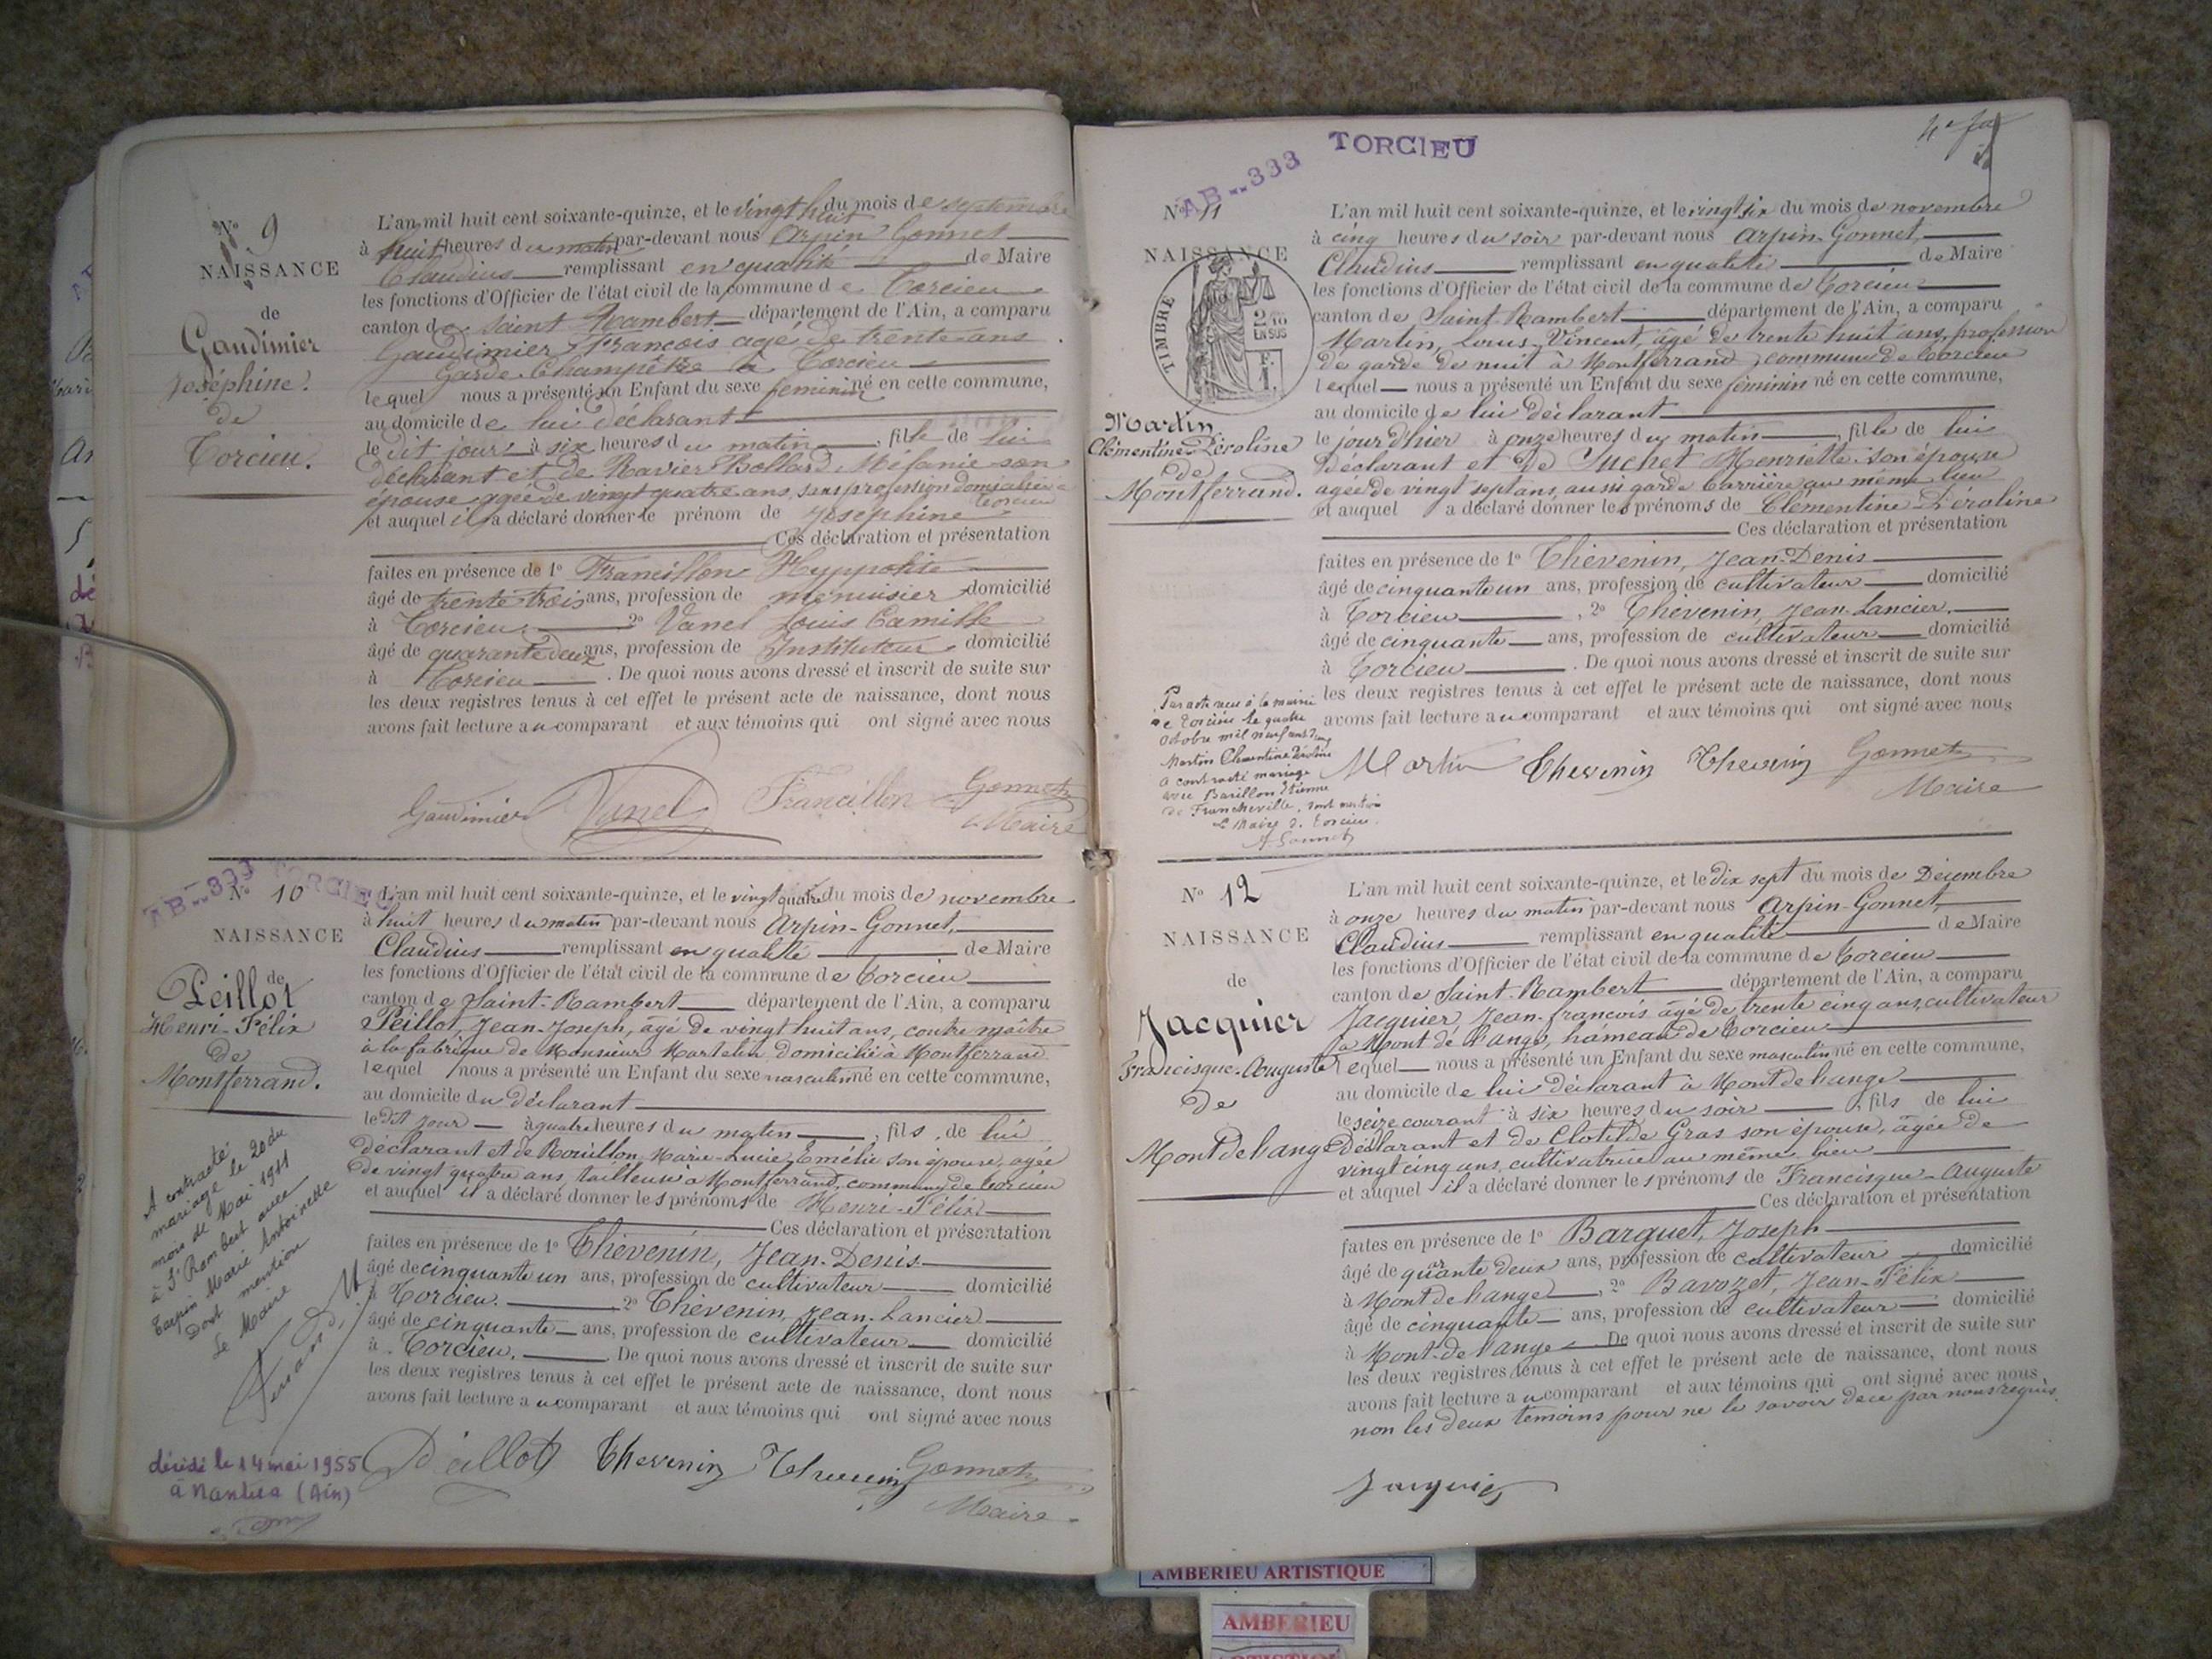 Nº 9
NAISSANCE
de
Gaudimier
Joséphine.
de
Torcieu.
L'an mil huit cent soixante-quinze, et le vingt huit du mois de septembre
à huit heures du matin par-devant nous Arpin Gonnet
Claudius remplissant en qualité de Maire
les fonctions d'Officier de l'état civil de la commune de Torcieu
canton de Saint Rambert département de l'Ain, a comparu
Gaudimier François agé de trente ans
Garde-Champêtre à Torcieu
lequel nous a présenté un Enfant du sexe féminin né en cette commune,
au domicile de lui déclarant
le dit jour à six heures du matin, fille de lui
déclarant et de Ravier Bollard Mélanie son
épouse agée de vingt quatre ans, sans profession domiciliée à Torcieu
et auquel il a déclaré donner le prénom de Joséphine
Ces déclaration et présentation
faites en présence de 1º Francillon Hyppolite
âgé de trente trois ans, profession de menuisier domicilié
à Torcieu. 2º Vanel Louis Camille
âgé de quarante deux ans, profession de Instituteur domicilié
à Torcieu. De quoi nous avons dressé et inscrit de suite sur
les deux registres tenus à cet effet le présent acte de naissance, dont nous
avons fait lecture au comparant et aux témoins qui ont signé avec nous
Gaudimier Vanel Francillon Gonnet
Maire
AB..333 TORCIEU
Nº 10
NAISSANCE
de
Peillot
Henri-Félix
de
Montferrand.
A contracté
mariage le 20 du
mois de Mai 1911
à St Rambert avec
Marie Antoinette
Dont mention
Le Maire
décédé le 14 mai 1955
à Nantua (Ain)
L'an mil huit cent soixante-quinze, et le vingt quatre du mois de novembre
à huit heures du matin par-devant nous Arpin-Gonnet,
Claudius remplissant en qualité de Maire
les fonctions d'Officier de l'état civil de la commune de Torcieu
canton de Saint-Rambert département de l'Ain, a comparu
Peillot, Jean-Joseph, âgé de vingt huit ans, contre maître
à la fabrique de Monsieur Martelin domicilié à Montferrand
lequel nous a présenté un Enfant du sexe masculin né en cette commune,
au domicile du déclarant
le dit jour à quatre heures du matin, fils de lui
déclarant et de Rouillon, Marie-Lucie, Emélie son épouse, agée
de vingt quatre ans, tailleuse à Montferrand, commune de Torcieu
et auquel il a déclaré donner les prénoms de Henri-Félix
Ces déclaration et présentation
faites en présence de 1º Thévenin, Jean-Denis
âgé de cinquante un ans, profession de cultivateur domicilié
à Torcieu. 2º Thévenin, Jean-Lancier
âgé de cinquante ans, profession de cultivateur domicilié
à Torcieu. De quoi nous avons dressé et inscrit de suite sur
les deux registres tenus à cet effet le présent acte de naissance, dont nous
avons fait lecture au comparant et aux témoins qui ont signé avec nous
Peillot Thevenin Thevenin Gonnet
Maire
TORCIEU
AB..333
Nº 11
NAISSANCE
TIMBRE
2/10
EN SUS
Martin
Clémentine-Péroline
de
Montferrand.
Par acte reçu à la mairie
de Torcieu le quatre
octobre mil neuf cent
Martin Clémentine Péroline
a contracté mariage
avec Barillon Etienne
de Francheville, dont mention
Le Maire de Torcieu
Gonnet
L'an mil huit cent soixante-quinze, et le vingt six du mois de novembre
à cinq heures du soir par-devant nous Arpin-Gonnet,
Claudius remplissant en qualité de Maire
les fonctions d'Officier de l'état civil de la commune de Torcieu
canton de Saint-Rambert département de l'Ain, a comparu
Martin, Louis-Vincent, âgé de trente huit ans, profession
de garde de nuit à Montferrand, commune de Torcieu
lequel nous a présenté un Enfant du sexe féminin né en cette commune,
au domicile de lui déclarant
le jour d'hier à onze heures du matin, fille de lui
déclarant et de Suchet Henriette son épouse
agée de vingt sept ans, aussi garde barrière au même lieu
et auquel a déclaré donner les prénoms de Clémentine-Péroline
Ces déclaration et présentation
faites en présence de 1º Thévenin, Jean-Denis
âgé de cinquante un ans, profession de cultivateur domicilié
à Torcieu, 2º Thévenin, Jean-Lancier.
âgé de cinquante ans, profession de cultivateur domicilié
à Torcieu. De quoi nous avons dressé et inscrit de suite sur
les deux registres tenus à cet effet le présent acte de naissance, dont nous
avons fait lecture au comparant et aux témoins qui ont signé avec nous
Martin Thevenin Thevenin Gonnet
Maire
Nº 12
NAISSANCE
de
Jacquier
Francisque-Auguste
de
Mont de Lange
L'an mil huit cent soixante-quinze, et le dix sept du mois de Décembre
à onze heures du matin par-devant nous Arpin-Gonnet,
Claudius remplissant en qualité de Maire
les fonctions d'Officier de l'état civil de la commune de Torcieu
canton de Saint-Rambert département de l'Ain, a comparu
Jacquier, Jean-françois âgé de trente cinq ans, cultivateur
à Mont de Lange, hameau de Torcieu
lequel nous a présenté un Enfant du sexe masculin né en cette commune,
au domicile de lui déclarant à Mont de Lange
le seize courant à six heures du soir, fils de lui
Déclarant et de Clotilde Gras son épouse, âgée de
vingt cinq ans, cultivatrice au même lieu
et auquel il a déclaré donner les prénoms de Francisque-Auguste
Ces déclaration et présentation
faites en présence de 1º Barquet, Joseph
âgé de quarante deux ans, profession de cultivateur domicilié
à Mont de Lange, 2º Bavozet, Jean-Félix
âgé de cinquante ans, profession de cultivateur domicilié
à Mont-de Lange De quoi nous avons dressé et inscrit de suite sur
les deux registres tenus à cet effet le présent acte de naissance, dont nous
avons fait lecture au comparant et aux témoins qui ont signé avec nous
non les deux témoins pour ne le savoir de ce par nous requis.
Jacquier
AMBERIEU ARTISTIQUE
AMBERIEU
ARTISTIQUE